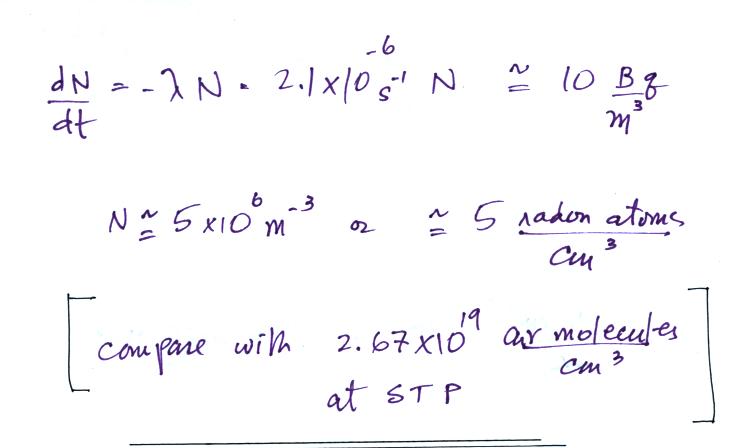 dN/dt = -λN = 2.1×10⁻⁶ s⁻¹ N ≅ 10 Bq/m³
N ≅ 5×10⁶ m⁻³ or ≅ 5 radon atoms/cm³
[compare with 2.67×10¹⁹ air molecules/cm³
at STP]